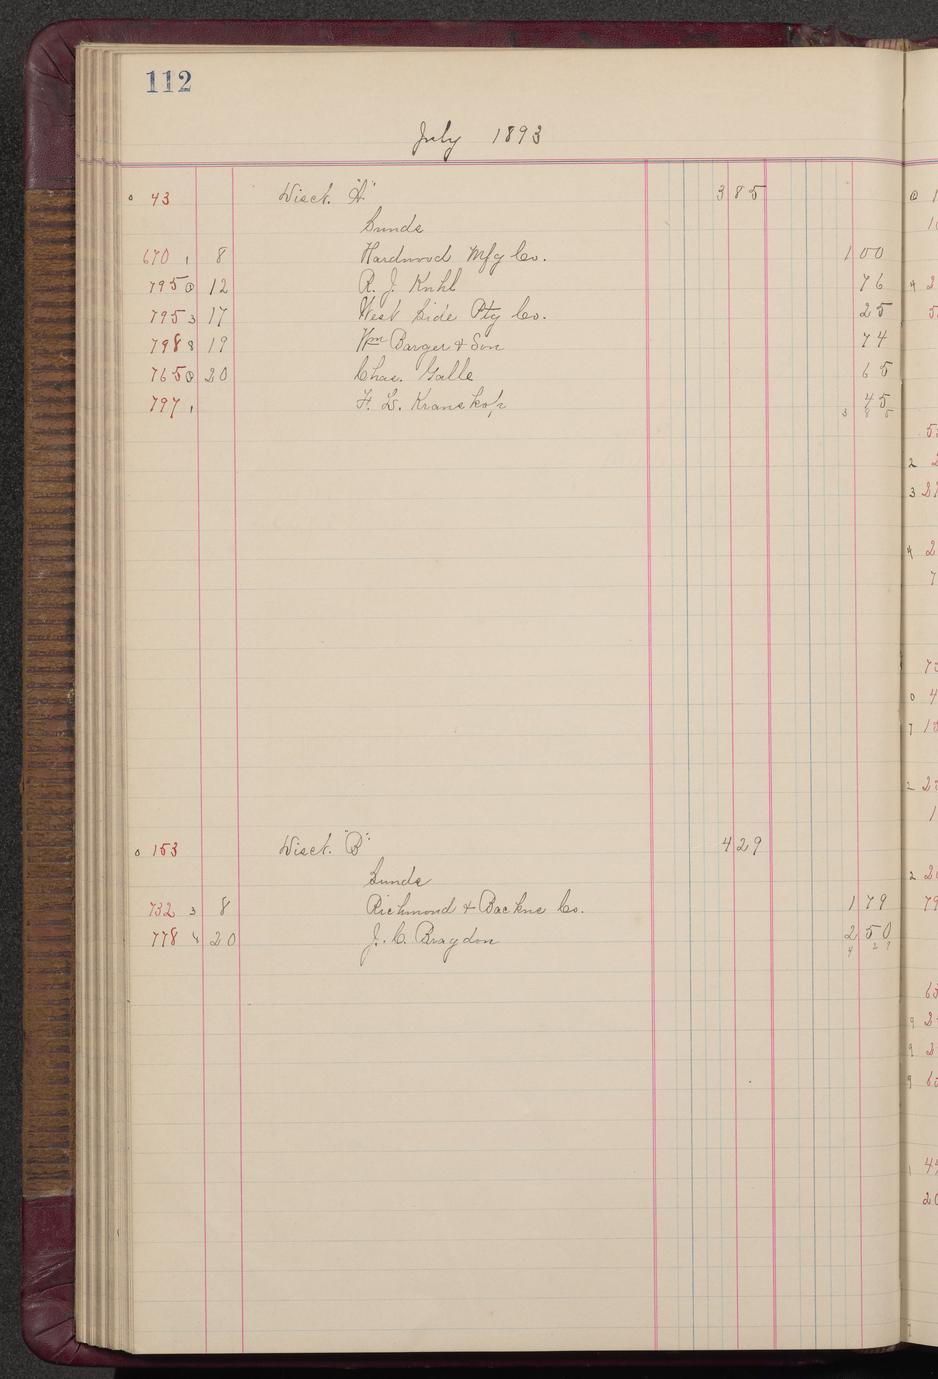 112
July 1893
0 43 Disct. "A" 3 85
Sunds
670 1 8 Hardwood Mfg Co. 1 00
795 0 12 R. J. Kuhl 76
795 3 17 West Side Ptg Co. 25
798 8 19 Wm Barger & Son 74
765 0 20 Chas. Galle 65
797 1 F. L. Kranskop 45
3 8 5
0 153 Disct. "B" 4 29
Sunds
732 3 8 Richmond & Backus Co. 1 79
778 20 J. C. Bragdon 2 50
4 2 9